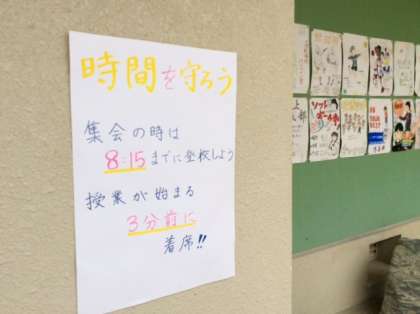 時間を守ろう
集会の時は
8:15までに登校しよう
授業が始まる
3分前に
着席!!
ソフト
ボール部